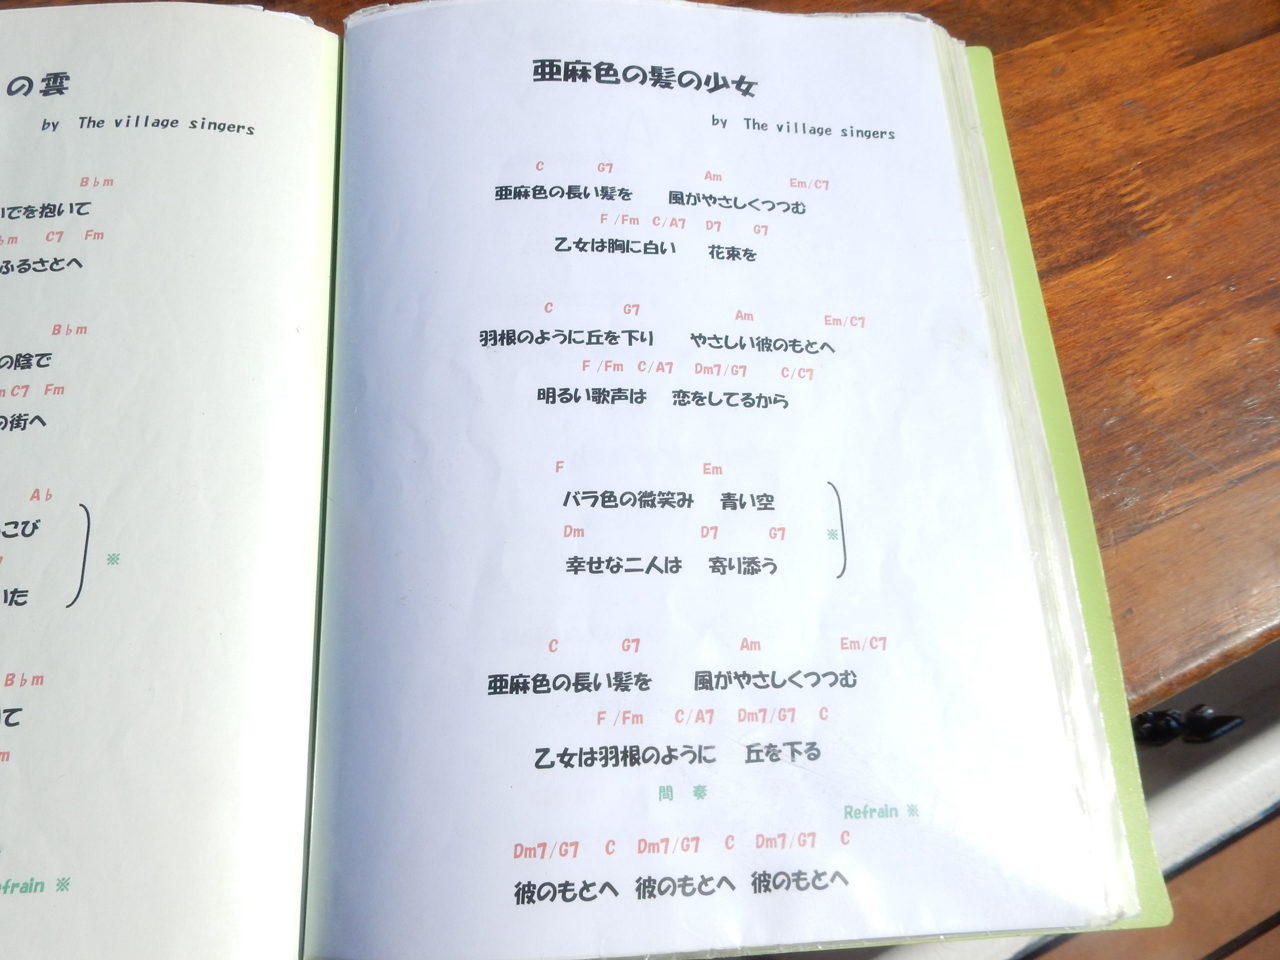 の雲
by The village singers
B♭m
いでを抱いて
♭m C7 Fm
ふるさとへ
B♭m
の陰で
m C7 Fm
の街へ
A♭
こび
※
いた
B♭m
て
m
efrain ※
亜麻色の髪の少女
by The village singers
C G7 Am Em/C7
亜麻色の長い髪を 風がやさしくつつむ
F /Fm C/A7 D7 G7
乙女は胸に白い 花束を
C G7 Am Em/C7
羽根のように丘を下り やさしい彼のもとへ
F /Fm C/A7 Dm7/G7 C/C7
明るい歌声は 恋をしてるから
F Em
バラ色の微笑み 青い空
Dm D7 G7 ※
幸せな二人は 寄り添う
C G7 Am Em/C7
亜麻色の長い髪を 風がやさしくつつむ
F /Fm C/A7 Dm7/G7 C
乙女は羽根のように 丘を下る
間 奏
Refrain ※
Dm7/G7 C Dm7/G7 C Dm7/G7 C
彼のもとへ 彼のもとへ 彼のもとへ